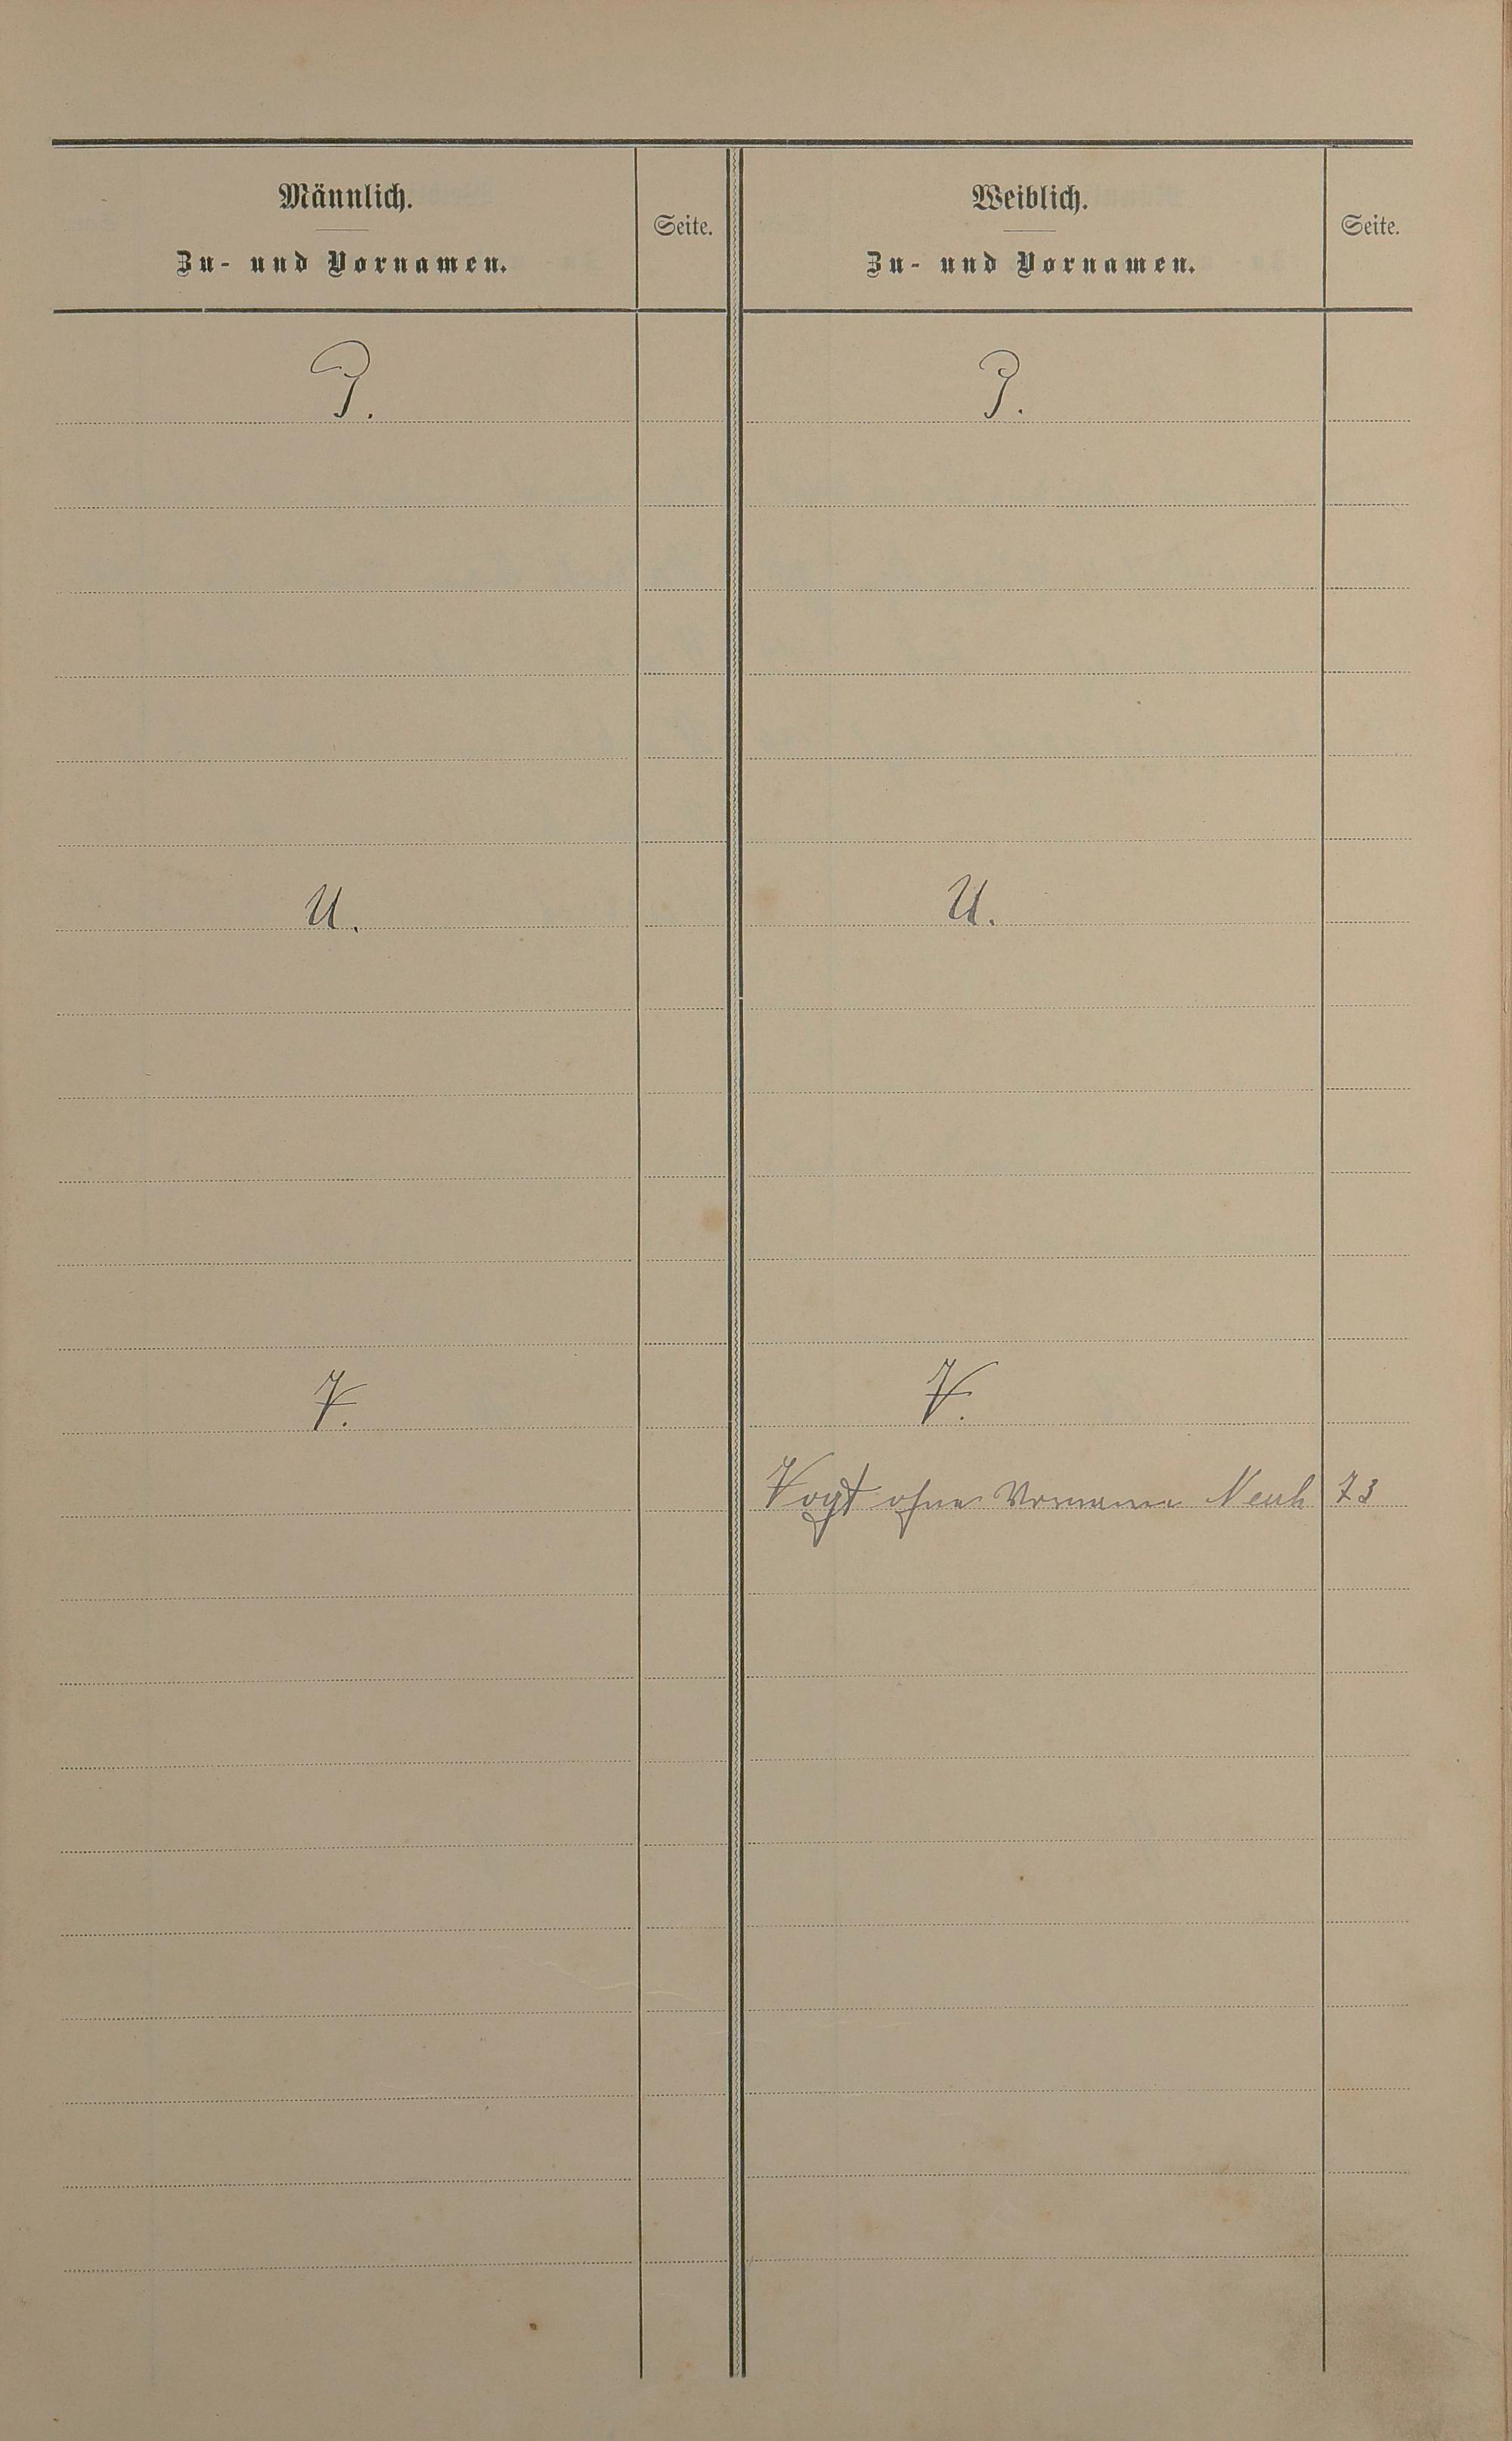 Männlich.
Zu- und Vornamen.
Seite.
Weiblich.
Zu- und Vornamen.
Seite.
T.
T.
U.
U.
V.
V.
Vogt ohne Vorname Neuh 73